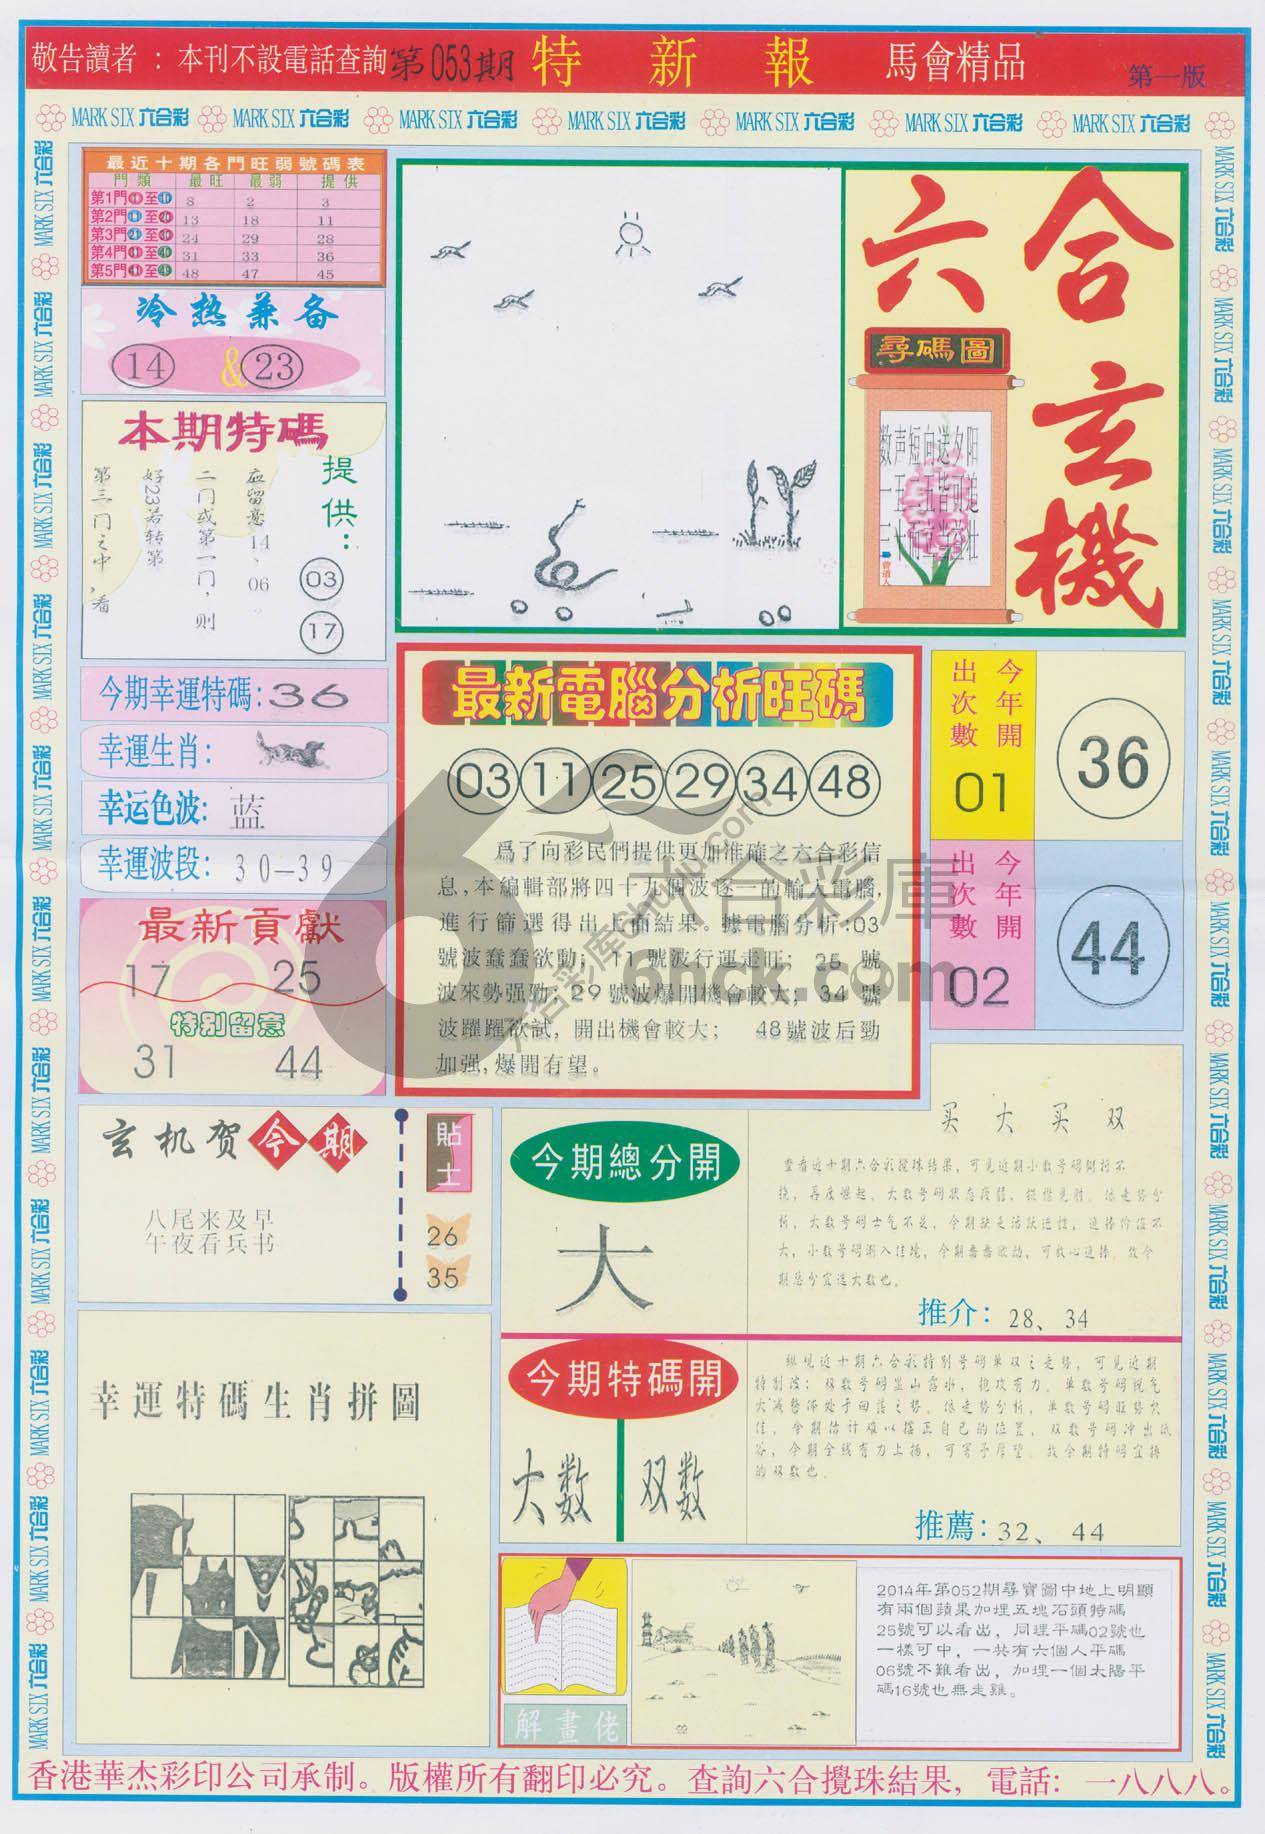 敬告讀者 ： 本刊不設電話查詢 第053期 特 新 報 馬會精品 第一版
MARK SIX 六合彩 MARK SIX 六合彩 MARK SIX 六合彩 MARK SIX 六合彩 MARK SIX 六合彩 MARK SIX 六合彩 MARK SIX 六合彩
最近十期各門旺弱號碼表
門類 最旺 最弱 提供
第1門 至 8 2 3
第2門 至 13 18 11
第3門 至 24 29 28
第4門 至 31 33 36
第5門 至 48 47 45
冷热兼备
14 & 23
本期特碼
提供：
03
17
应留意14、06。
二门或第一门，则
好23若转第
第三门之中，看
六合玄機
尋碼圖
数声短向送夕阳
曾道人
今期幸運特碼：36
幸運生肖：
幸运色波：蓝
幸運波段：30—39
最新貢獻
17 25
特別留意
31 44
最新電腦分析旺碼
03 11 25 29 34 48
爲了向彩民們提供更加准確之六合彩信
息，本編輯部將四十九個波逐一的輸入電腦，
進行篩選得出上面結果。據電腦分析：03
號波蠢蠢欲動； 11 號波行運走旺； 25 號
波來勢强勁；29 號波爆開機會較大；34 號
波躍躍欲試，開出機會較大； 48號波后勁
加强，爆開有望。
今年開
出次數
01
36
今年開
出次數
02
44
六合彩庫
6hck.com
玄机贺今期
八尾来及早
午夜看兵书
貼士
26
35
今期總分開
大
买大买双
查看近十期六合彩搅珠结果，可见近期小数号码
推介：28、34
今期特碼開
大数 双数
纵观近十期六合彩特别号码单双之走势，可见近期
的双数也。
推薦：32、44
幸運特碼生肖拼圖
解畫佬
2014年第052期尋寶圖中地上明顯
有兩個蘋果加埋五塊石頭特碼
25號可以看出，同理平碼02號也
一樣可中，一共有六個人平碼
06號不難看出，加埋一個太陽平
碼16號也無走雞。
香港華杰彩印公司承制。版權所有翻印必究。查詢六合攪珠結果，電話：一八八八。